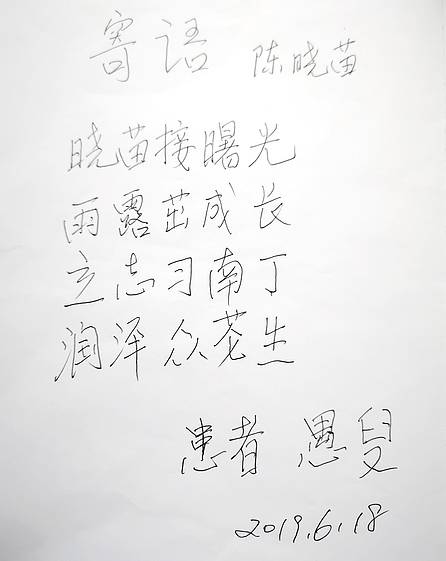 寄语 陈晓苗
晓苗接曙光
雨露茁成长
立志习南丁
润泽众苍生
患者 愚叟
2019.6.18